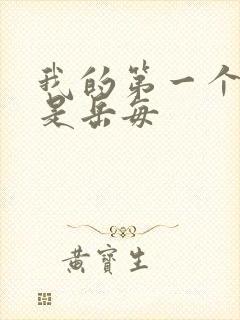 我的第一个
是岳每
黄宝生